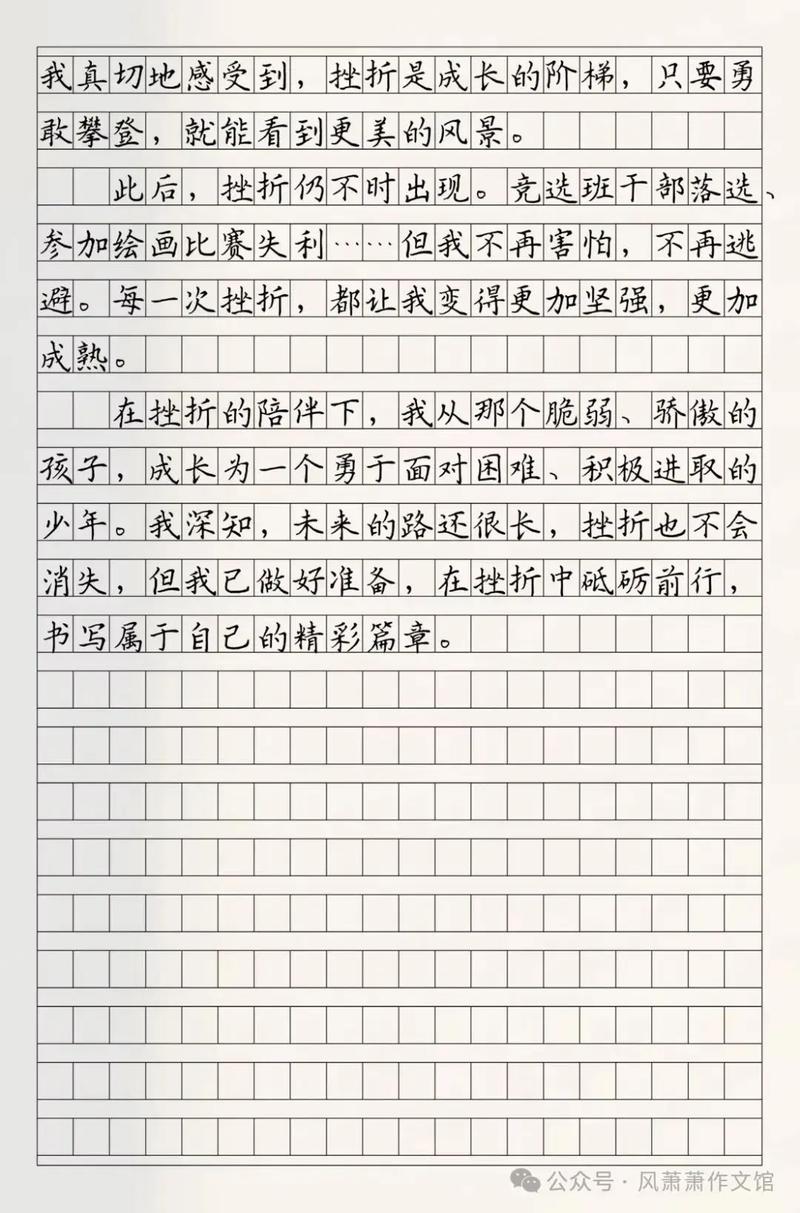 我真切地感受到，挫折是成长的阶梯，只要勇
敢攀登，就能看到更美的风景。
此后，挫折仍不时出现。竞选班干部落选、
参加绘画比赛失利……但我不再害怕，不再逃
避。每一次挫折，都让我变得更加坚强，更加
成熟。
在挫折的陪伴下，我从那个脆弱、骄傲的
孩子，成长为一个勇于面对困难、积极进取的
少年。我深知，未来的路还很长，挫折也不会
消失，但我已做好准备，在挫折中砥砺前行，
书写属于自己的精彩篇章。
公众号·风萧萧作文馆